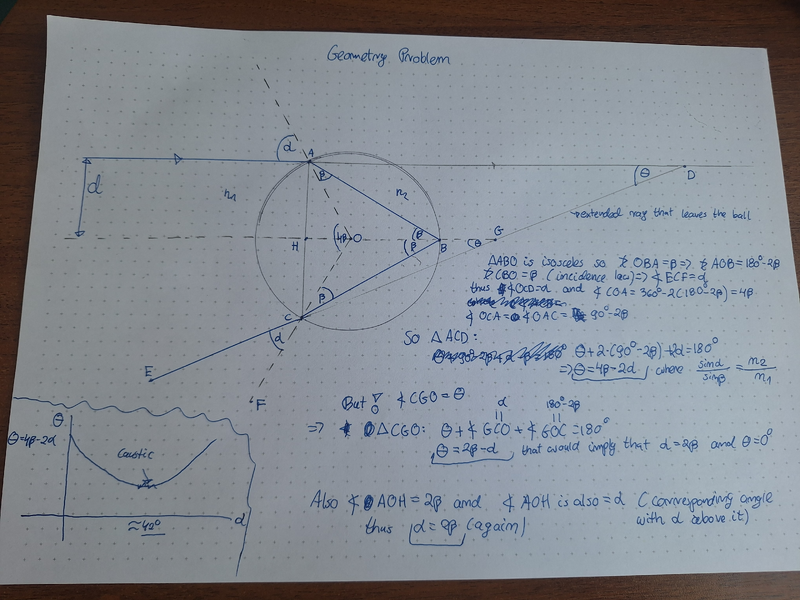 Geometry Problem
α
A
β
d
n₁
n₂
θ
D
→extended ray that leaves the ball
H
4β
O
β
β
B
θ
G
β
C
α
E
F
ΔABO is isosceles so ∢OBA=β=> ∢AOB=180°-2β
∢CBO=β (incidence law)=> ∢ECF=α
thus ∢OCD=α and ∢COA=360°-2(180°-2β)=4β
∢OCA=∢OAC= 90°-2β
So ΔACD:
θ+2·(90°-2β)+2α=180°
=> θ=4β-2α, where sinα/sinβ = n₂/n₁
But ! ∢CGO=θ
α 180°-2β
=> ΔCGO: θ+∢GCO+∢GOC=180°
θ=2β-α that would imply that α=2β and θ=0°
Also ∢AOH=2β and ∢AOH is also=α (corresponding angle
with α above it)
thus α=2β (again)
θ
θ=4β-2α
Caustic
≈42°
α